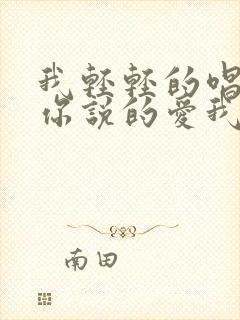 我輕輕的唱
你說的愛我
南田